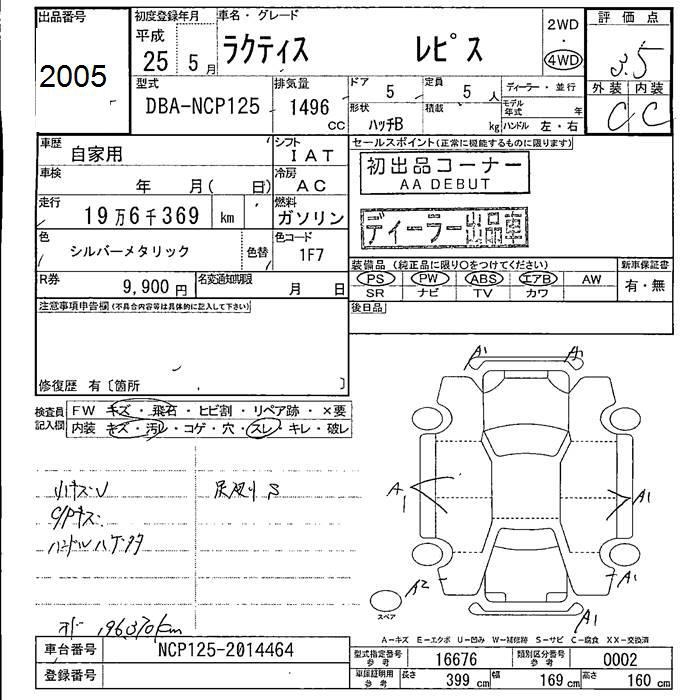 出品番号 初度登録年月 車名・グレード 評価点
2005 平成 25 5月 ラクティス レピス 2WD・4WD 3.5
型式 排気量 ドア 定員 ディーラー・並行 外装 内装
DBA-NCP125 1496 CC 5 5 人 C C
形状 ハッチB 積載 kg モデル年式 年
ハンドル 左・右
車歴 自家用 シフト IAT セールスポイント(正常に機能するものに限ります)
初出品コーナー
AA DEBUT
車検 年 月( 日) 冷房 AC
走行 19万6千369 km 燃料 ガソリン
ディーラー出品車
色 シルバーメタリック 色替 色コード 1F7
装備品 (純正品に限り○をつけてください) 新車保証書
PS PW ABS エアB AW 有・無
SR ナビ TV カワ
R券 9,900円 名変通知期限 月 日
注意事項申告欄(不具合内容等は具体的に記入して下さい) 後日品
修復歴 有〔箇所 〕
検査員記入欄 FW キズ・飛石・ヒビ割・リペア跡・×要
内装 キズ・汚レ・コゲ・穴・スレ・キレ・破レ
A1 A1
A1 A1
A2 A1
A1
スペア
196370km
A-キズ E-エクボ U-凹み W-補修跡 S-サビ C-腐食 XX-交換済
車台番号 NCP125-2014464
型式指定番号 参考 16676 類別区分番号 参考 0002
登録番号
車庫証明用 参考 長さ 399 cm 幅 169 cm 高さ 160 cm